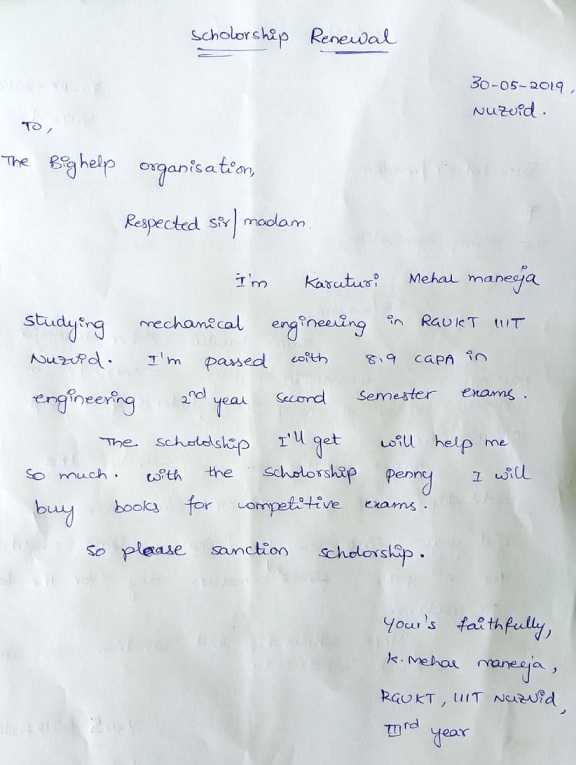 Scholorship Renewal
30-05-2019,
Nuzvid.
To,
The Bighelp organisation,
Respected sir/madam.
I'm Karuturi Mehar maneeja
studying mechanical engineering in RGUKT IIIT
Nuzvid. I'm passed with 8.9 CGPA in
engineering 2nd year second semester exams.
The scholdship I'll get will help me
so much. with the scholorship penny I will
buy books for competitive exams.
so please sanction scholorship.
Your's faithfully,
K. Mehar maneeja,
RGUKT, IIIT Nuzvid,
IIIrd year